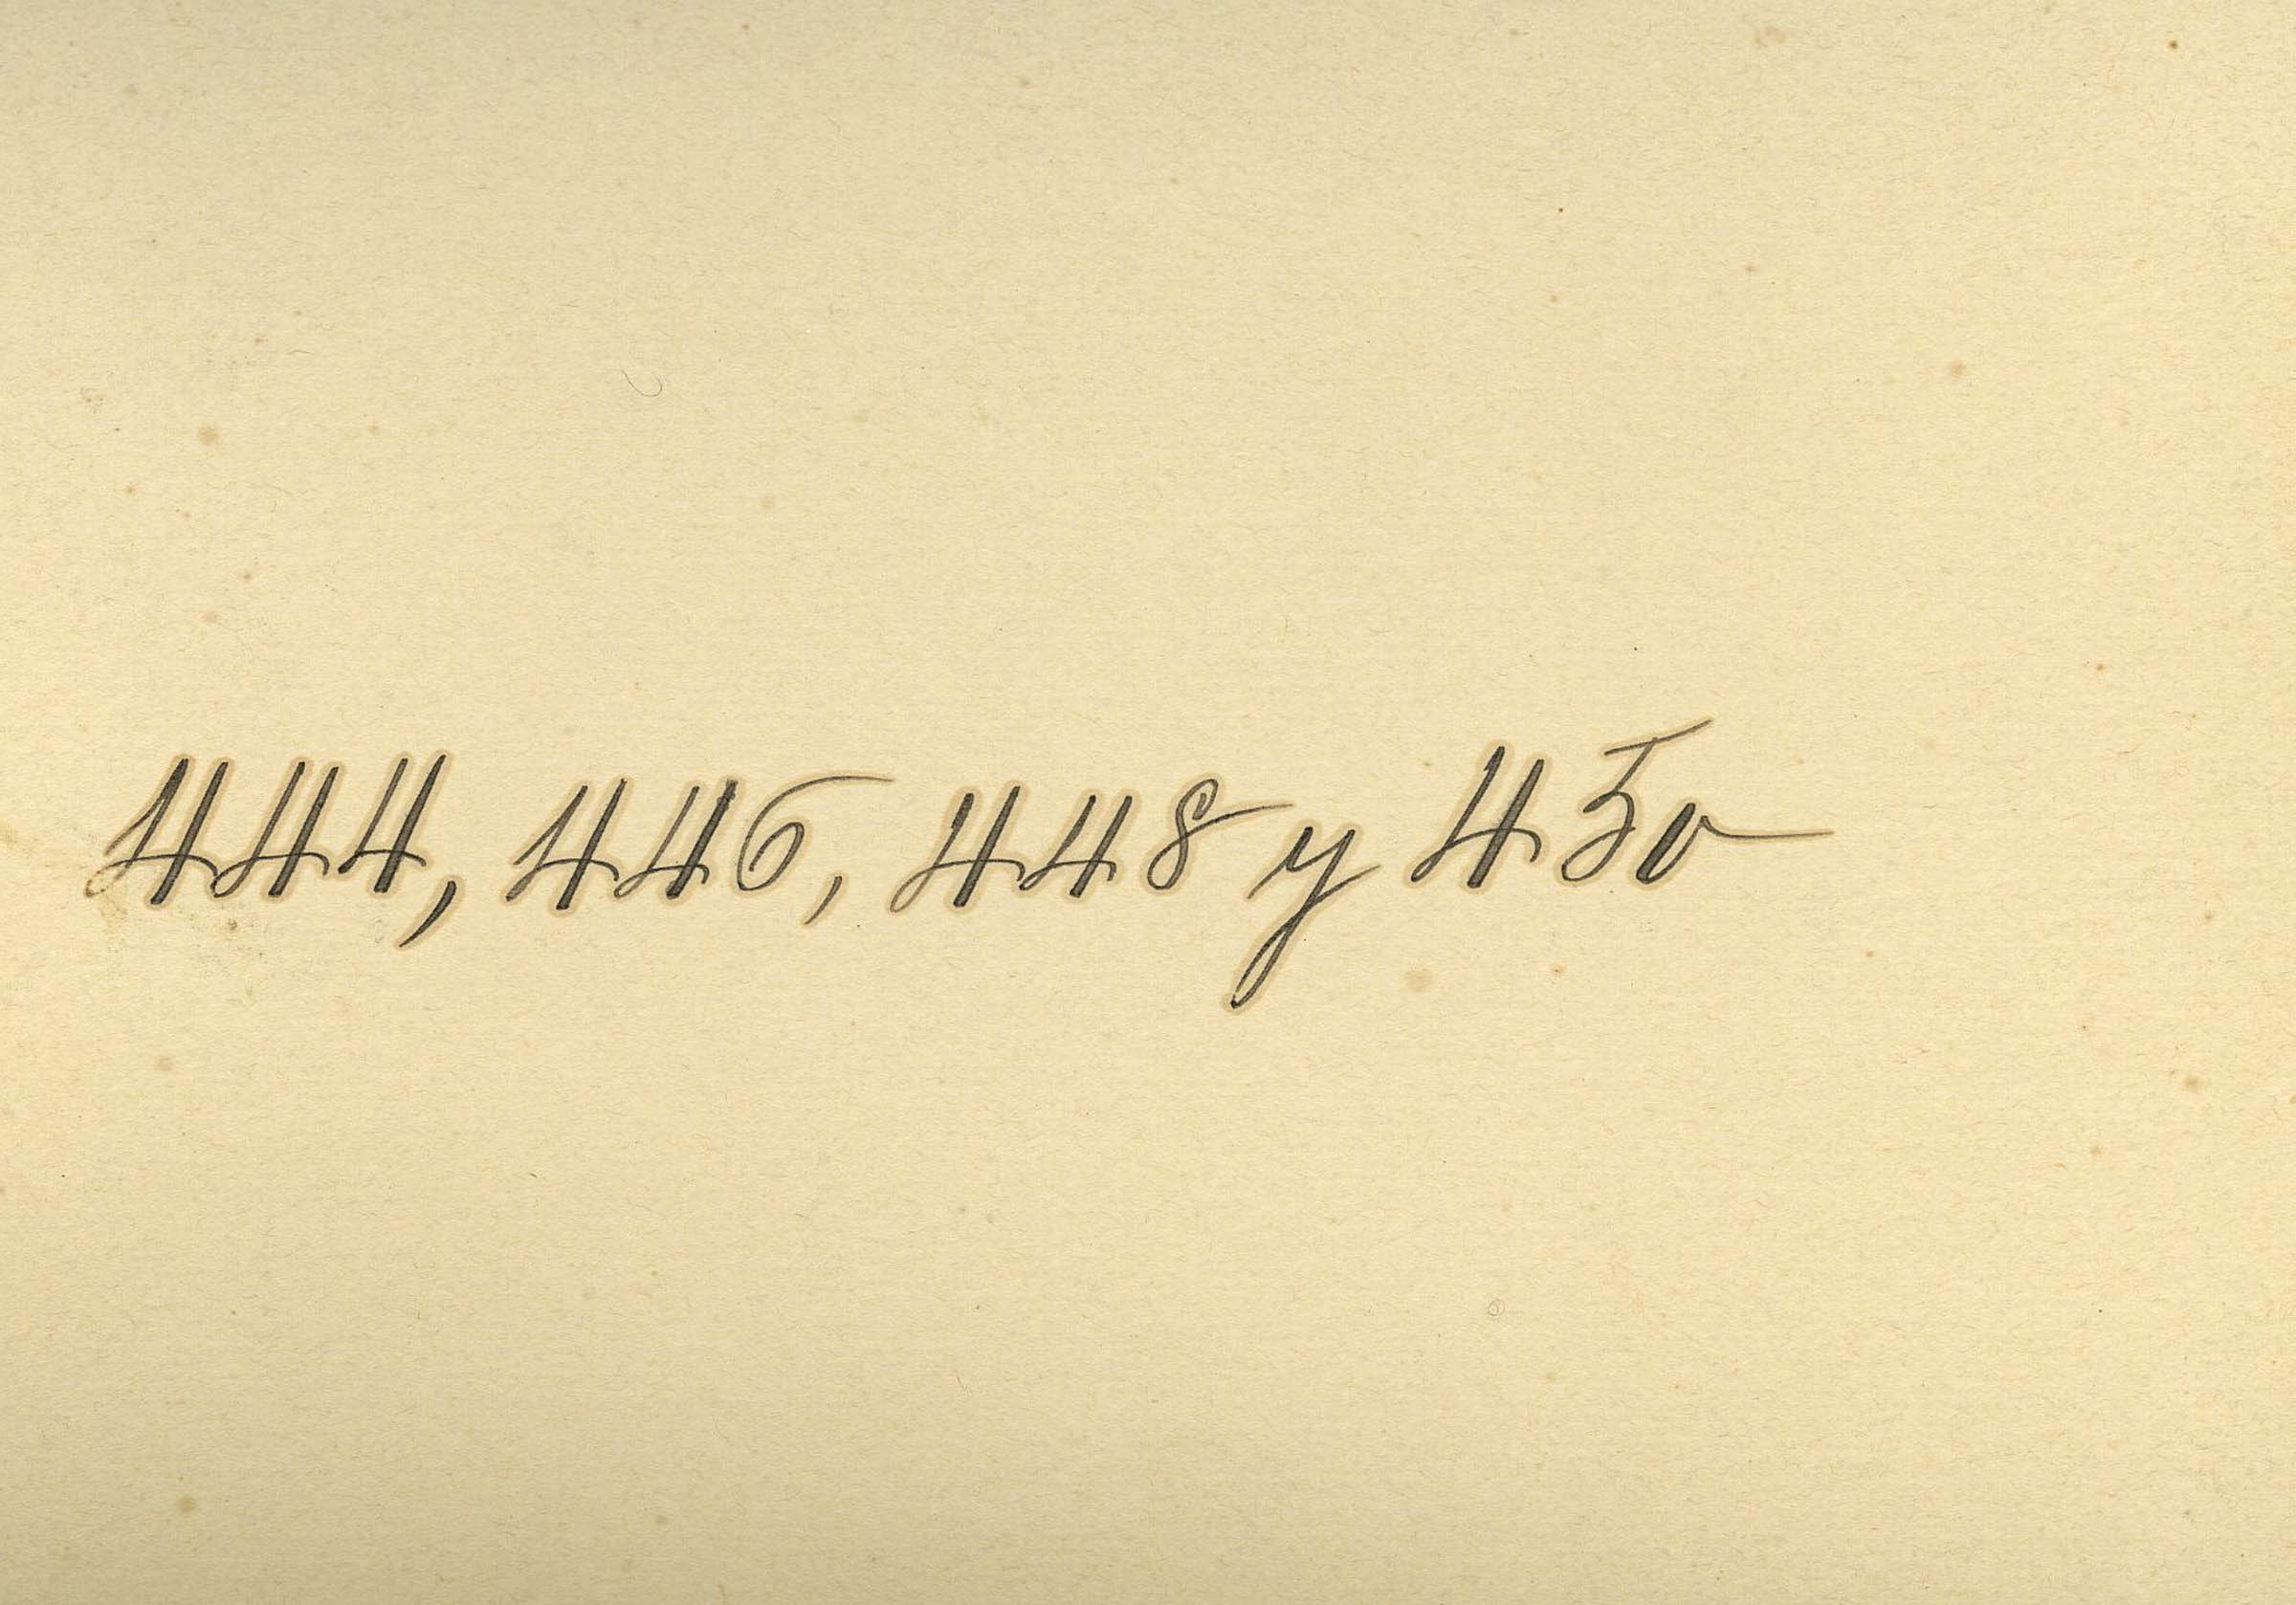 444, 446, 448 y 450